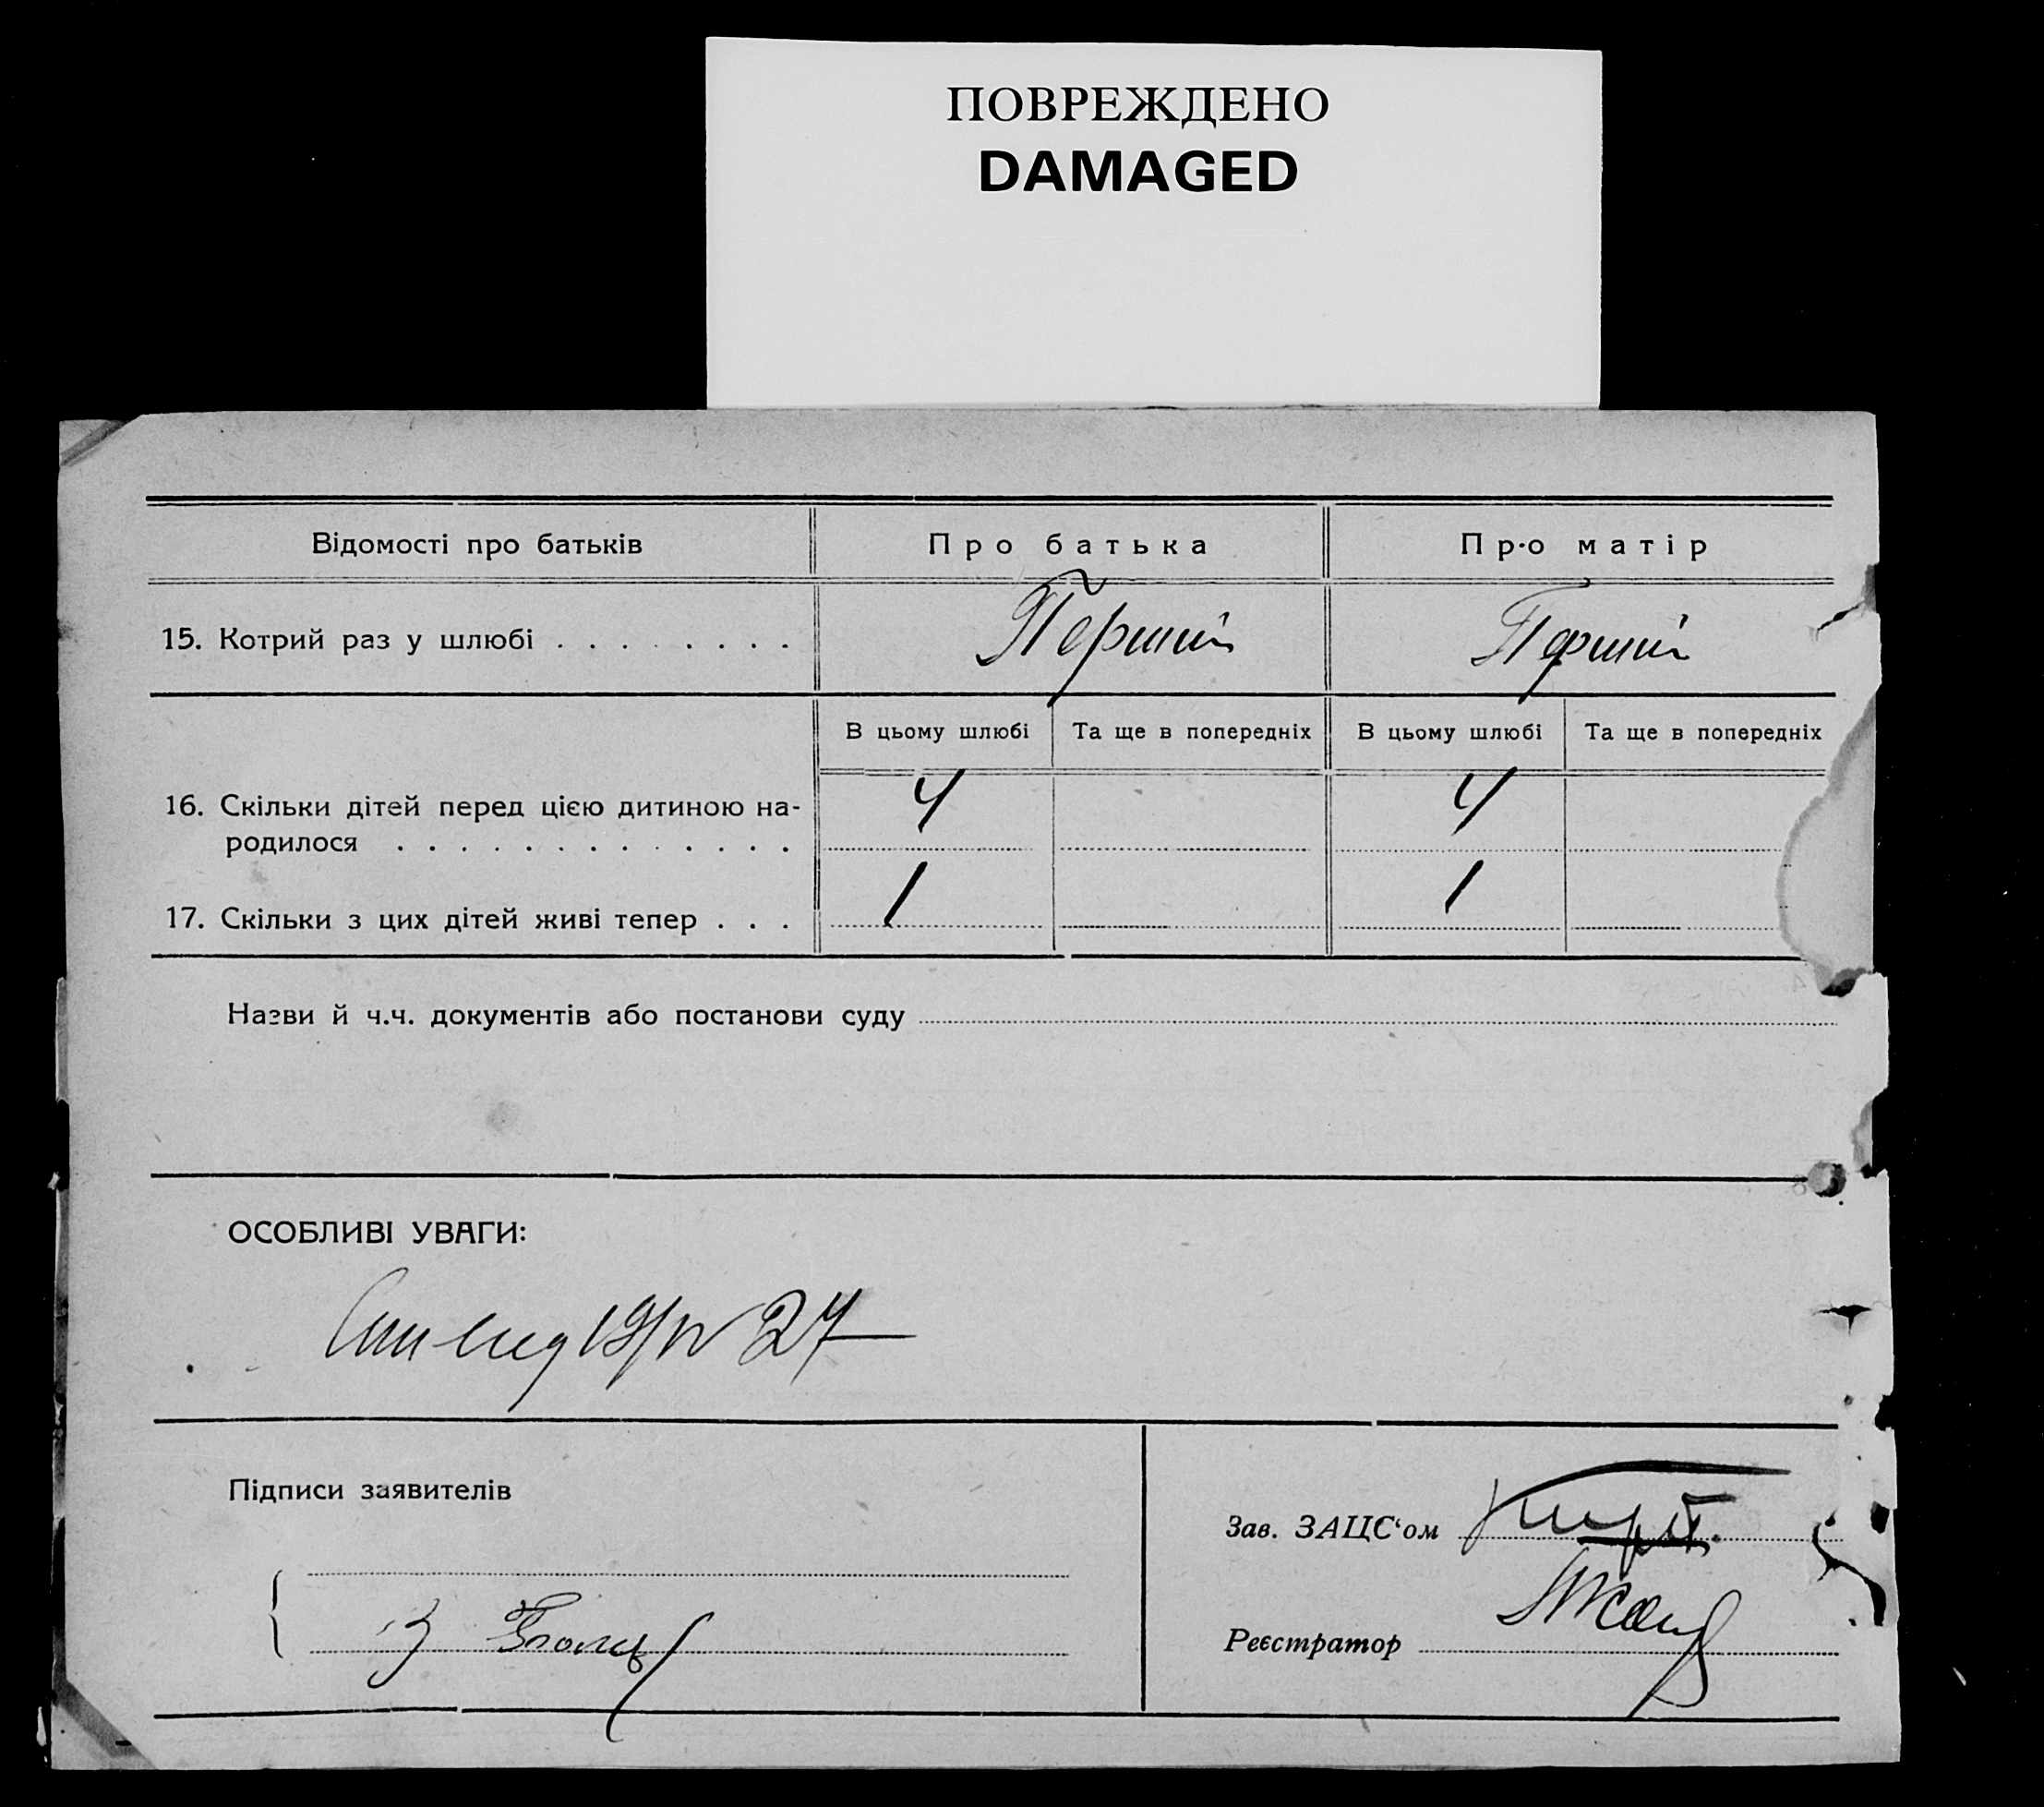 ПОВРЕЖДЕНО
DAMAGED
Відомості про батьків
Про батька
Про матір
15. Котрий раз у шлюбі . . . . . . . .
Перший
Перший
В цьому шлюбі
Та ще в попередніх
В цьому шлюбі
Та ще в попередніх
16. Скільки дітей перед цією дитиною на-
родилося . . . . . . . . . . . . .
4
4
17. Скільки з цих дітей живі тепер . . .
1
1
Назви й ч.ч. документів або постанови суду
ОСОБЛИВІ УВАГИ:
19/IV 27
Підписи заявителів
Зав. ЗАЦС‘ом
Реєстратор